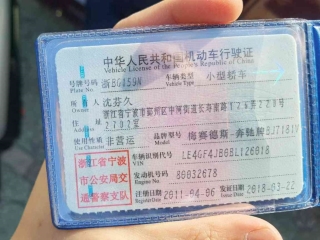 中华人民共和国机动车行驶证
Vehicle License of the People's Republic of China
号牌号码 浙BG159N 车辆类型 小型轿车
Plate No. Vehicle Type
所有人 沈芬久
住址 浙江省宁波市鄞州区中河街道长寿家126弄228号
2702室
使用性质 非营运 品牌型号 梅赛德斯-奔驰牌BJ7181V
Use Character Model
浙江省宁波 车辆识别代号 LE4GF4JB6BL126018
VIN
市公安局交 发动机号码 80032678
Engine No.
通警察支队 注册日期 2011-04-06 发证日期 2018-03-22
Register Date Issue Date